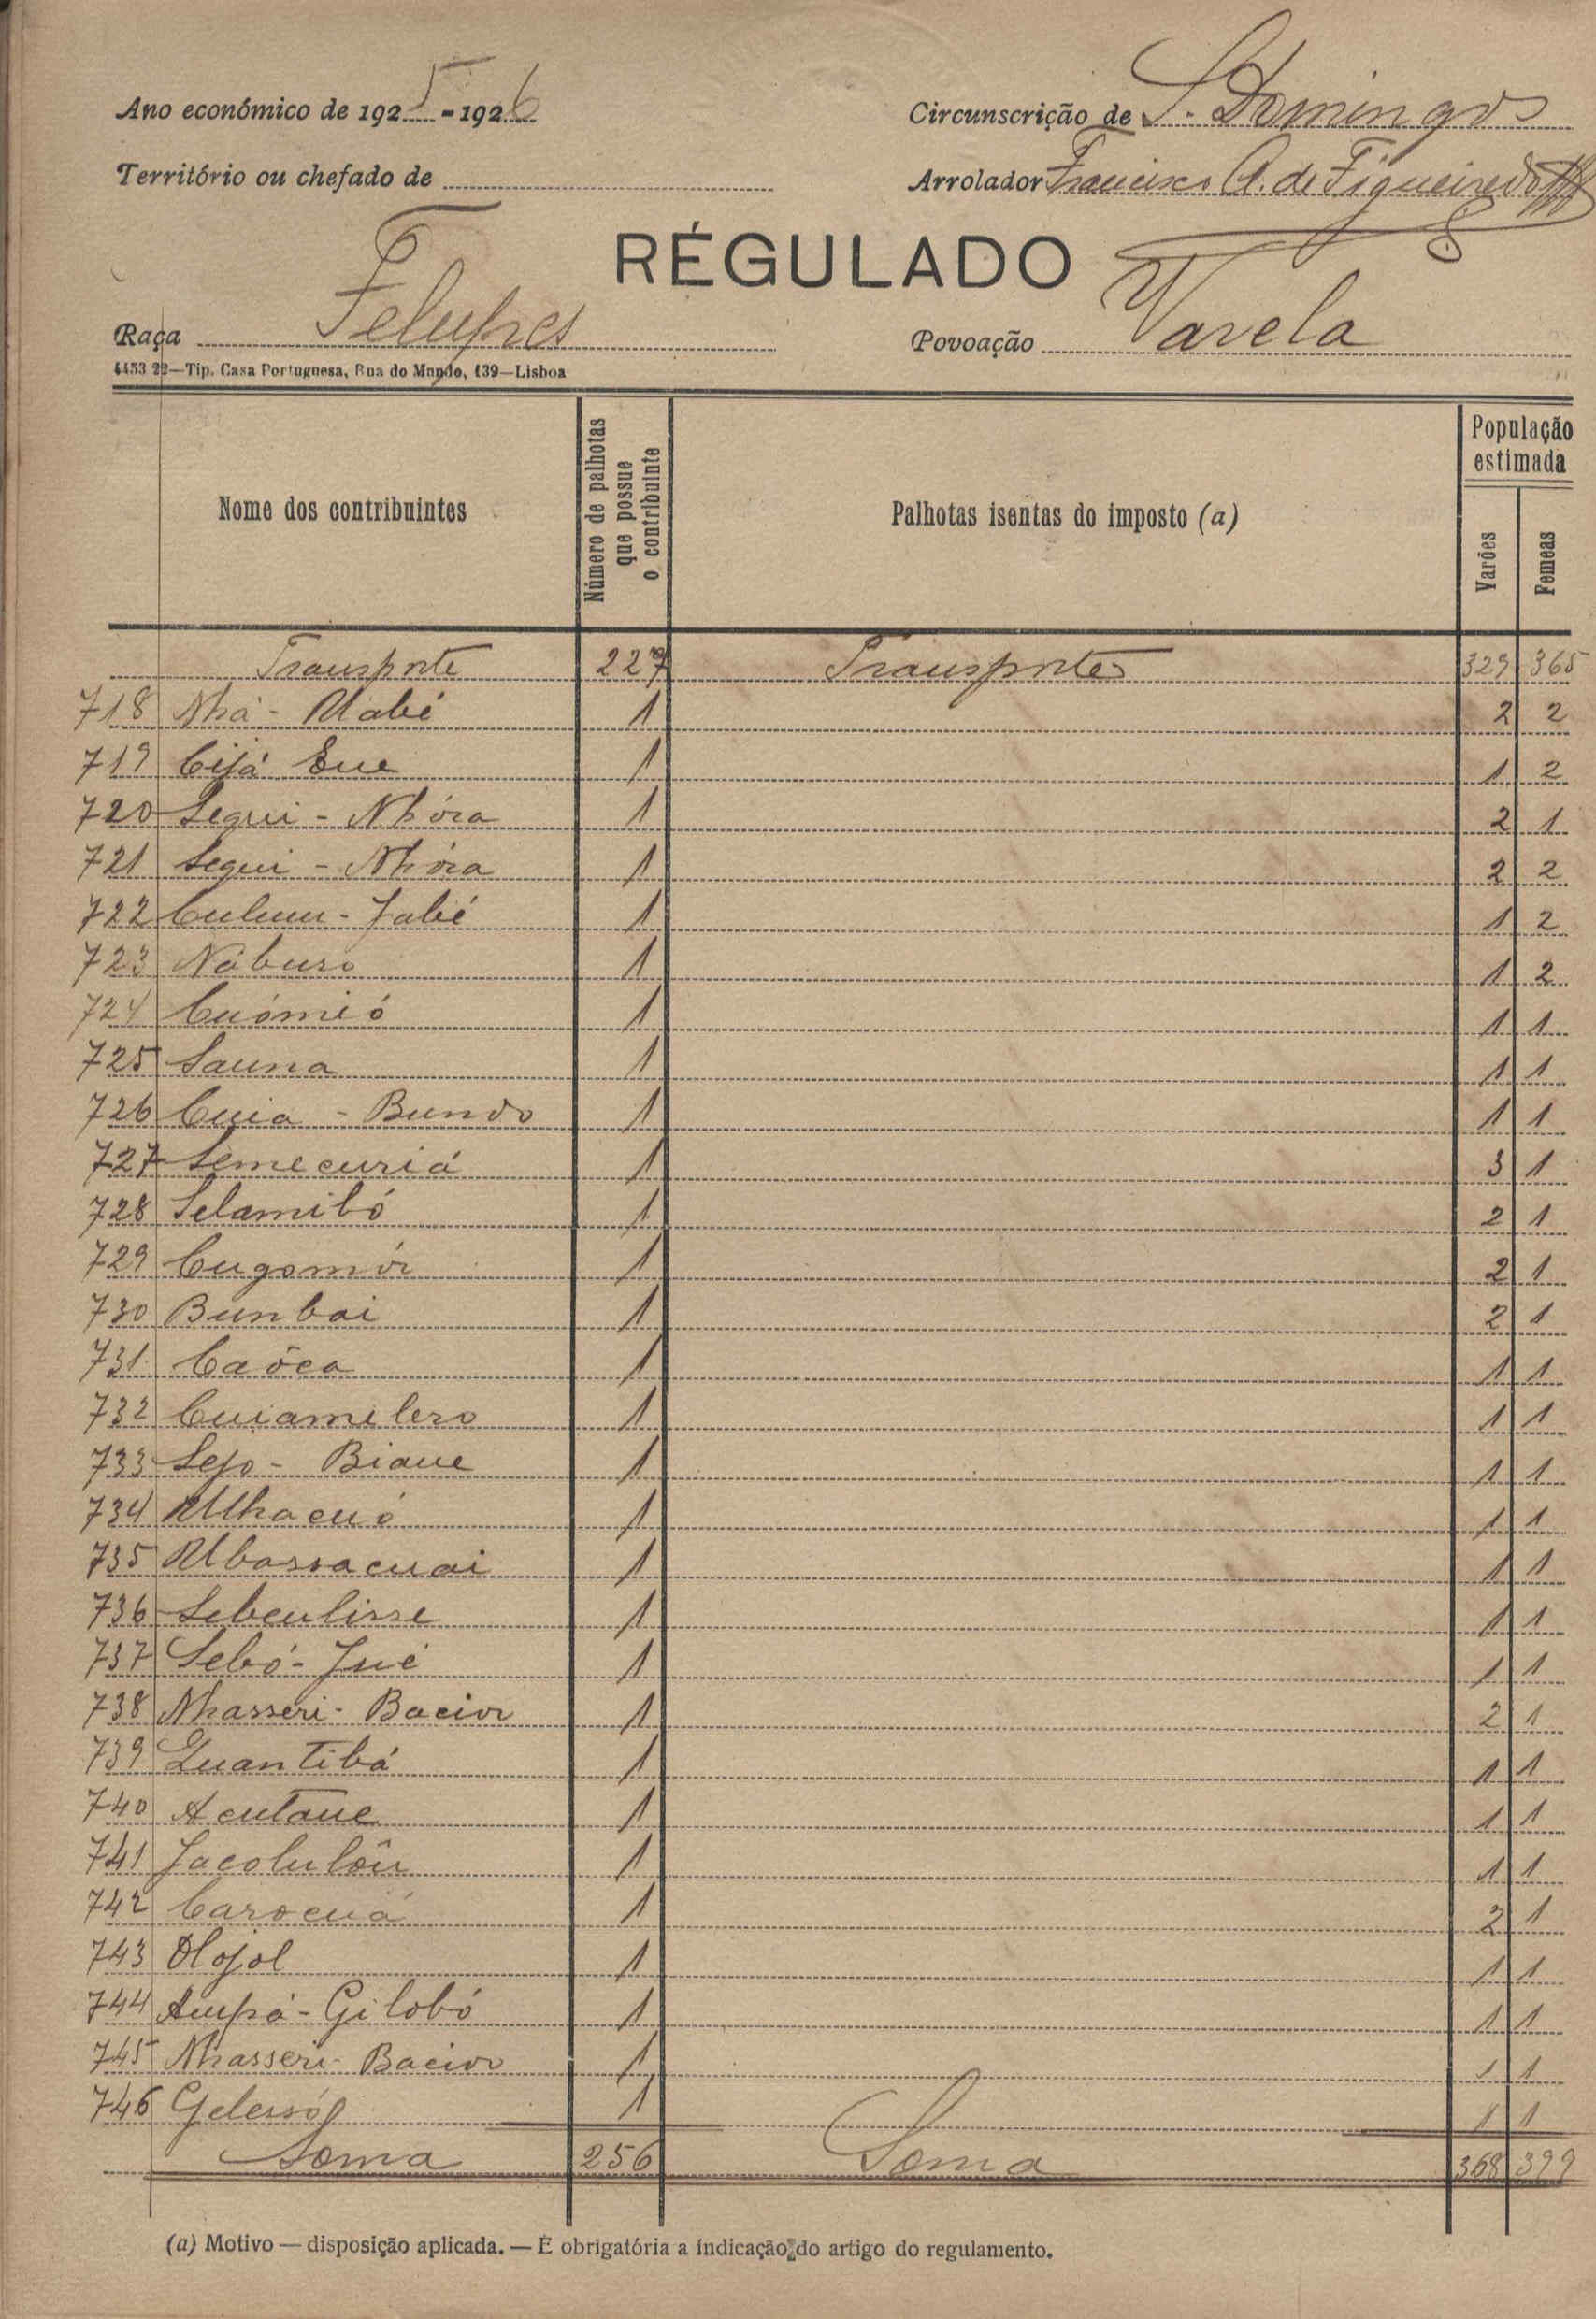 Ano económico de 1925-1926
Circunscrição de S. Domingos
Território ou chefado de
Arrolador Francisco A. de Figueiredo
RÉGULADO
Raça Felupes
Povoação Varela
4453 22—Tip. Casa Portuguesa, Rua do Mundo, 139—Lisboa
Nome dos contribuintes
Número de palhotas que possue o contribuinte
Palhotas isentas do imposto (a)
População estimada
Varões
Femeas
Transporte 227 Transporte 329 365
718 Nhá - Uabé 1 2 2
719 Cijá Eue 1 1 2
720 Segui - Nhóra 1 2 1
721 Segui - Nhóra 1 2 2
722 Culuu - Jabé 1 1 2
723 Náburo 1 1 2
724 Cuómió 1 1 1
725 Sauna 1 1 1
726 Cuia - Bundo 1 1 1
727 Semecuriá 1 3 1
728 Selamibó 1 2 1
729 Cugomór 1 2 1
730 Bunbai 1 2 1
731 Caóca 1 1 1
732 Cuiamilero 1 1 1
733 Sejo - Biaue 1 1 1
734 Ulhacuó 1 1 1
735 Ubassacuai 1 1 1
736 Sebeulisse 1 1 1
737 Sebó - Jué 1 1 1
738 Nhasseri - Bacior 1 2 1
739 Quantibá 1 1 1
740 Acutaue 1 1 1
741 Jacolulôu 1 1 1
742 Carocuá 1 2 1
743 Olojol 1 1 1
744 Aupá - Gilobó 1 1 1
745 Nhasseri - Bacior 1 1 1
746 Gelessól 1 1 1
Soma 256 Soma 368 399
(a) Motivo — disposição aplicada. — É obrigatória a indicação do artigo do regulamento.